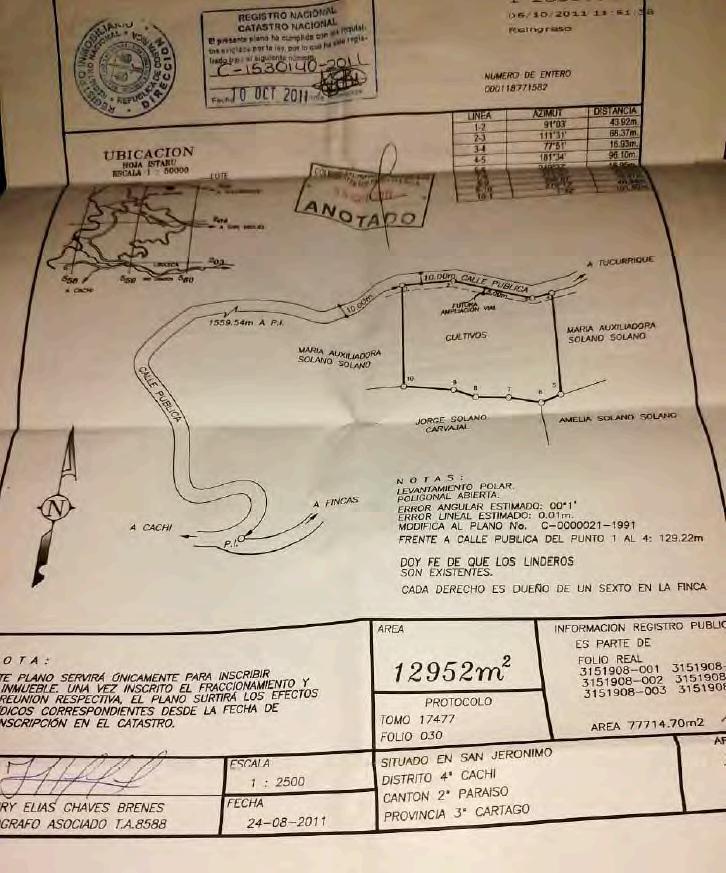 06/10/2011 11:51:38
Reingreso
REGISTRO NACIONAL
CATASTRO NACIONAL
El presente plano ha cumplido con los requisi-
C-1530140-2011
Fecha 10 OCT 2011
REGISTRO INMOBILIARIO
DIRECCION
REGISTRO NACIONAL
REPUBLICA DE COSTA RICA
NUMERO DE ENTERO
000118771582
LINEA AZIMUT DISTANCIA
1-2 91°03' 43.92m
2-3 111°31' 68.37m
3-4 77°51' 16.93m
4-5 181°34' 96.10m
UBICACION
HOJA ISTARU
ESCALA 1 : 50000
LOTE
ANOTADO
A CACHI
558 559 560
203
A TUCURRIQUE
10.00m CALLE PUBLICA
10.00m
FUTURA
AMPLIACION VIAL
1559.54m A P.I.
CULTIVOS
MARIA AUXILIADORA
SOLANO SOLANO
MARIA AUXILIADORA
SOLANO SOLANO
CALLE PUBLICA
10 9 8 7 6 5
JORGE SOLANO
CARVAJAL
AMELIA SOLANO SOLANO
N
A CACHI
A FINCAS
P.I.
NOTAS:
LEVANTAMIENTO POLAR.
POLIGONAL ABIERTA.
ERROR ANGULAR ESTIMADO: 00°1'
ERROR LINEAL ESTIMADO: 0.01m.
MODIFICA AL PLANO No. C-0000021-1991
FRENTE A CALLE PUBLICA DEL PUNTO 1 AL 4: 129.22m
DOY FE DE QUE LOS LINDEROS
SON EXISTENTES.
CADA DERECHO ES DUEÑO DE UN SEXTO EN LA FINCA
OTA:
TE PLANO SERVIRÁ ÚNICAMENTE PARA INSCRIBIR
INMUEBLE. UNA VEZ INSCRITO EL FRACCIONAMIENTO Y
REUNION RESPECTIVA, EL PLANO SURTIRÁ LOS EFECTOS
DICOS CORRESPONDIENTES DESDE LA FECHA DE
NSCRIPCIÓN EN EL CATASTRO.
AREA
12952m²
PROTOCOLO
TOMO 17477
FOLIO 030
INFORMACION REGISTRO PUBLIC
ES PARTE DE
FOLIO REAL
3151908-001 3151908-
3151908-002 315190
3151908-003 315190
AREA 77714.70m2
RY ELIAS CHAVES BRENES
OGRAFO ASOCIADO T.A.8588
ESCALA
1 : 2500
FECHA
24-08-2011
SITUADO EN SAN JERONIMO
DISTRITO 4° CACHI
CANTON 2° PARAISO
PROVINCIA 3° CARTAGO